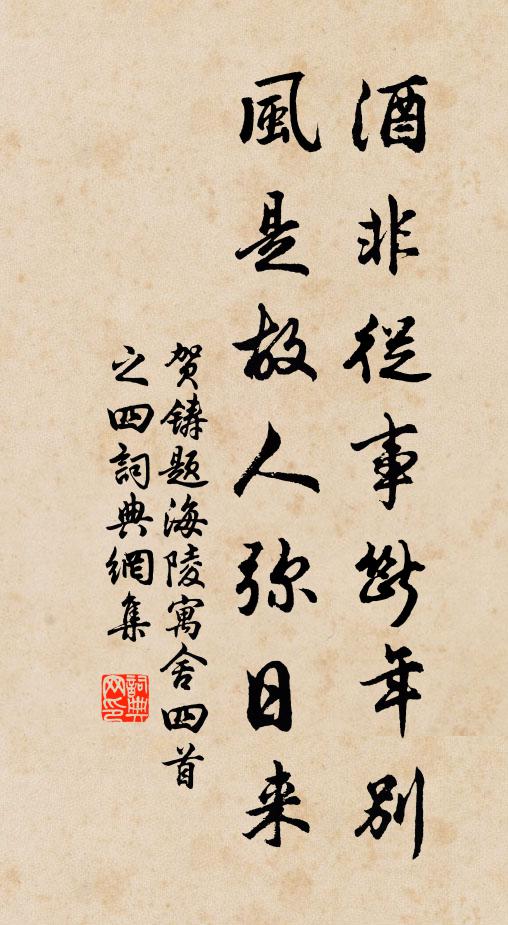 酒非從事斷年別
風是故人弥日来
贺鑄题海陵寓舍四首
之四詞典網集
詞典网印